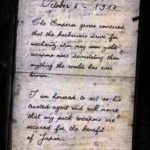 October 6 - 1911
The Emperor grows concerned
that the barbarians drive for
weapons more devastating than
anything the world has ever
known.
I am honored to act as his
trusted agent and will ensure
that any such weapons are
secured for the benefit
of Japan.